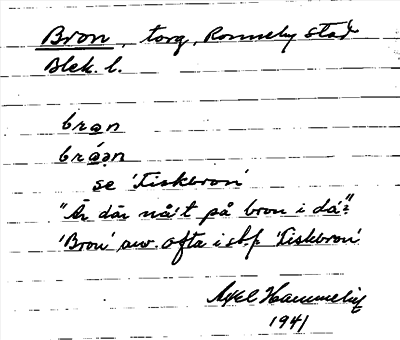 Bron, torg, Ronneby stad
Blek. l.
bron
bróən
se 'Fiskbron'
"Är där nå:t på bron i dá?"
'Bron' anv. ofta i st.f. 'Fiskbron'
Axel Hammelin
1941